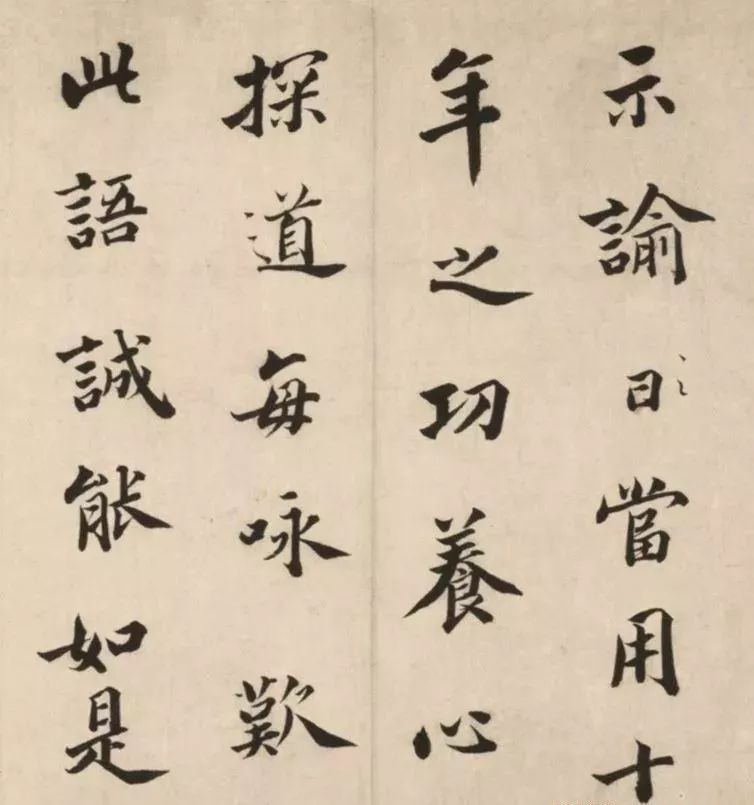 示諭日當用十
年之功養心
探道每咏歎
此語誠能如是